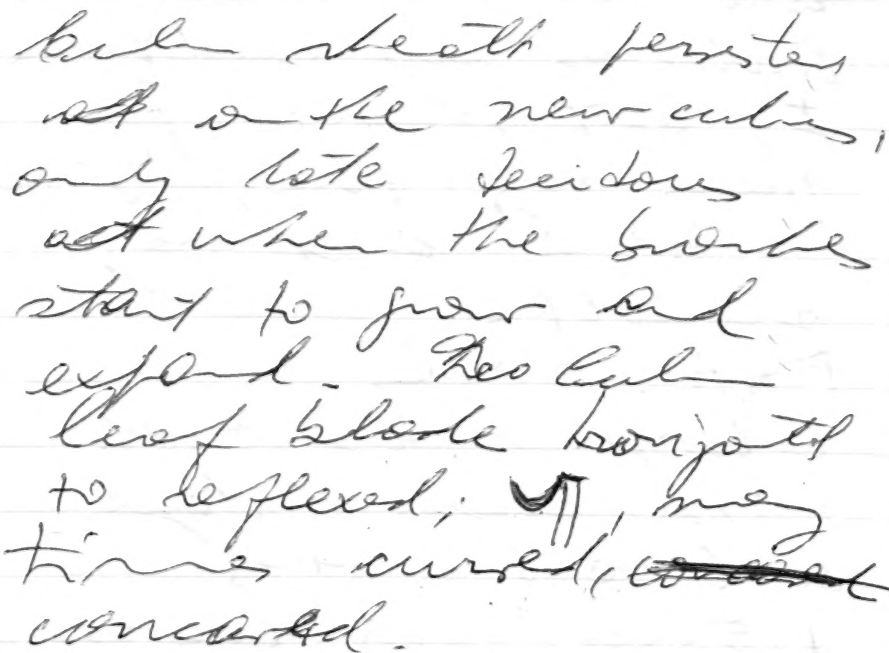 culm sheath persistent
on the new culms,
only late deciduous
when the branches
start to grow and
expand. The culm
leaf blade horizontal
to reflexed; , many
times curved,
concaved.